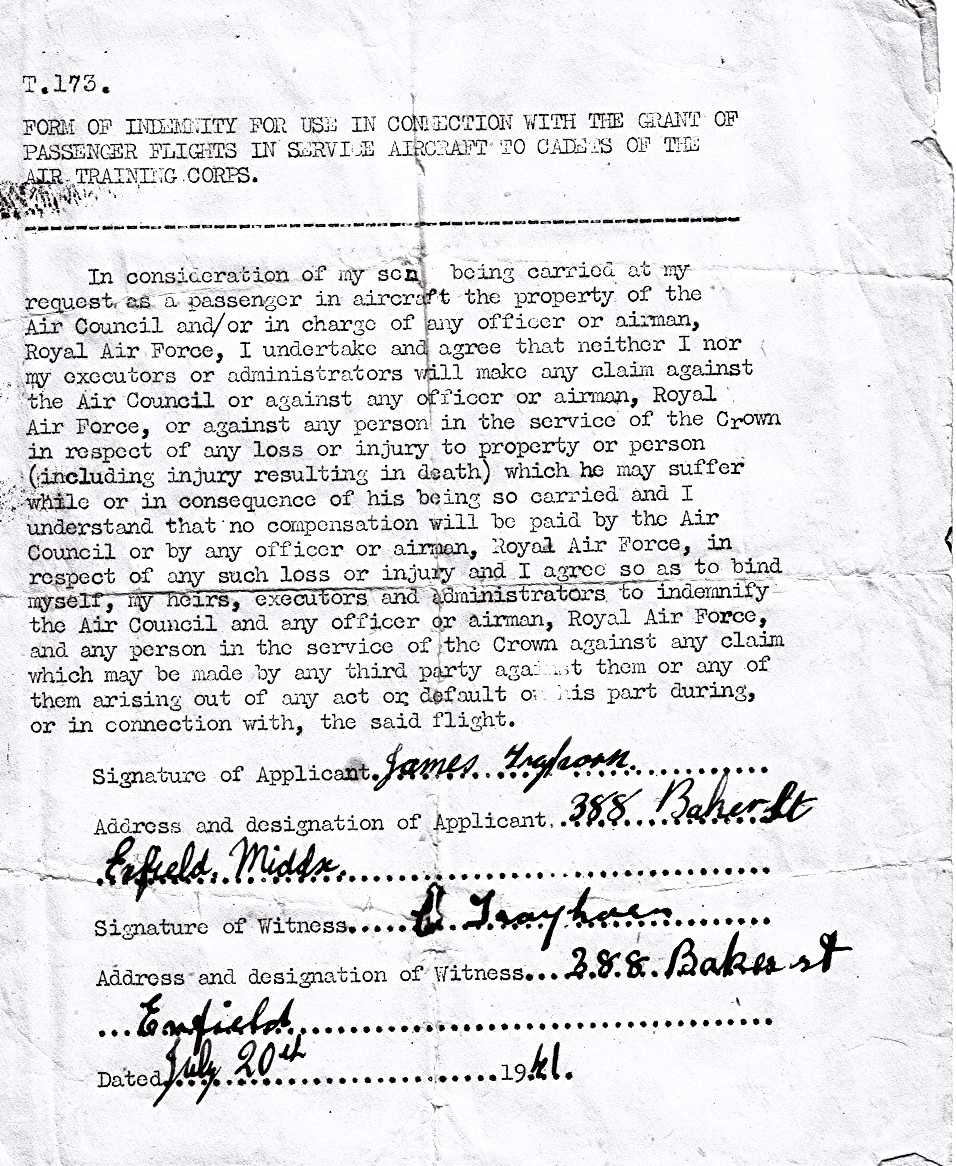 T.173.
FORM OF INDEMNITY FOR USE IN CONNECTION WITH THE GRANT OF
PASSENGER FLIGHTS IN SERVICE AIRCRAFT TO CADETS OF THE
AIR TRAINING CORPS.
In consideration of my son being carried at my
request as a passenger in aircraft the property of the
Air Council and/or in charge of any officer or airman,
Royal Air Force, I undertake and agree that neither I nor
my executors or administrators will make any claim against
the Air Council or against any officer or airman, Royal
Air Force, or against any person in the service of the Crown
in respect of any loss or injury to property or person
(including injury resulting in death) which he may suffer
while or in consequence of his being so carried and I
understand that no compensation will be paid by the Air
Council or by any officer or airman, Royal Air Force, in
respect of any such loss or injury and I agree so as to bind
myself, my heirs, executors and administrators to indemnify
the Air Council and any officer or airman, Royal Air Force,
and any person in the service of the Crown against any claim
which may be made by any third party against them or any of
them arising out of any act or default on his part during,
or in connection with, the said flight.
Signature of Applicant. James Trayhorn
Address and designation of Applicant. 388 Baker St
Enfield. Middx.
Signature of Witness. Trayhorn
Address and designation of Witness... 388. Baker st
Enfield
Dated July 20th 1941.